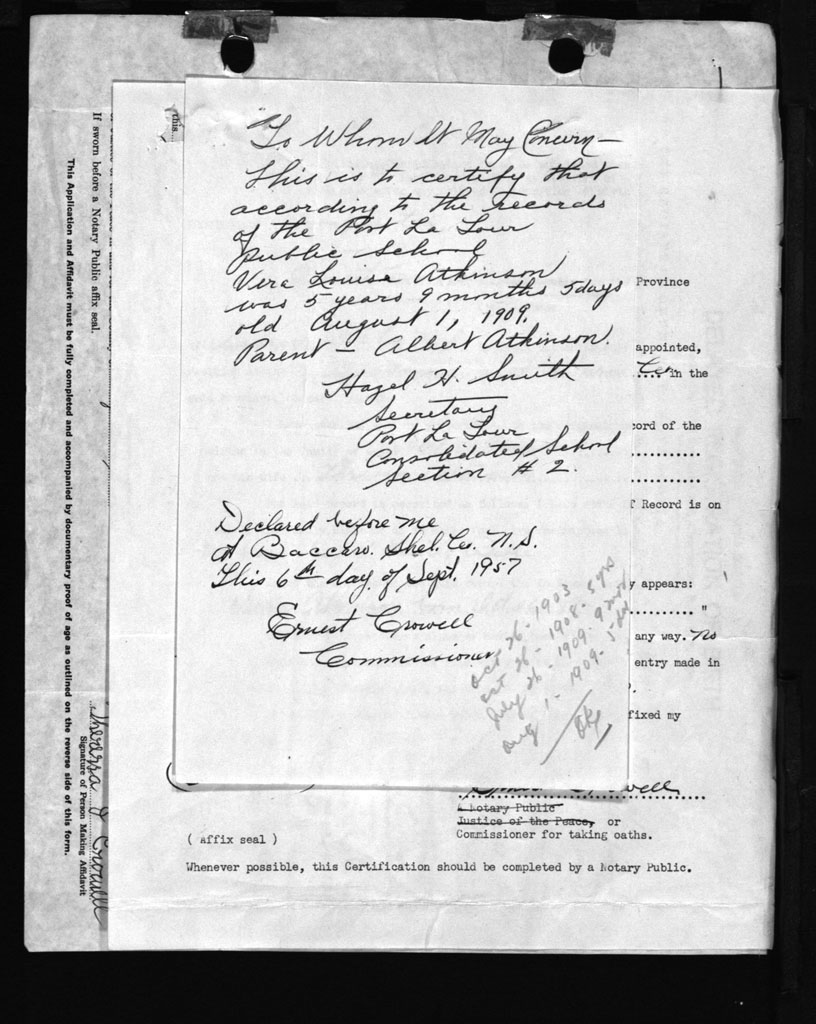 To Whom It May Concern—
This is to certify that
according to the records
of the Port La Tour
public school
Vera Louisa Atkinson
was 5 years 9 months 5 days
old August 1, 1909.
Parent — Albert Atkinson.
Hazel H. Smith
Secretary
Port La Tour
Consolidated School
Section # 2.
Declared before me
at Baccaro. Shel. Co. N.S.
This 6th day of Sept. 1957
Ernest Crowell
Commissioner
Oct 26 - 1903
Oct 26 - 1908 - 5 yrs
July 26 - 1909 - 9 mos
Aug 1 - 1909 - 5 da
Province
appointed,
in the
cord of the
..............
..............
f Record is on
y appears:
........... "
any way. No
entry made in
fixed my
A Notary Public
Justice of the Peace, or
Commissioner for taking oaths.
( affix seal )
Whenever possible, this Certification should be completed by a Notary Public.
this...
If sworn before a Notary Public affix seal.
Signature of Person Making Affidavit
This Application and Affidavit must be fully completed and accompanied by documentary proof of age as outlined on the reverse side of this form.